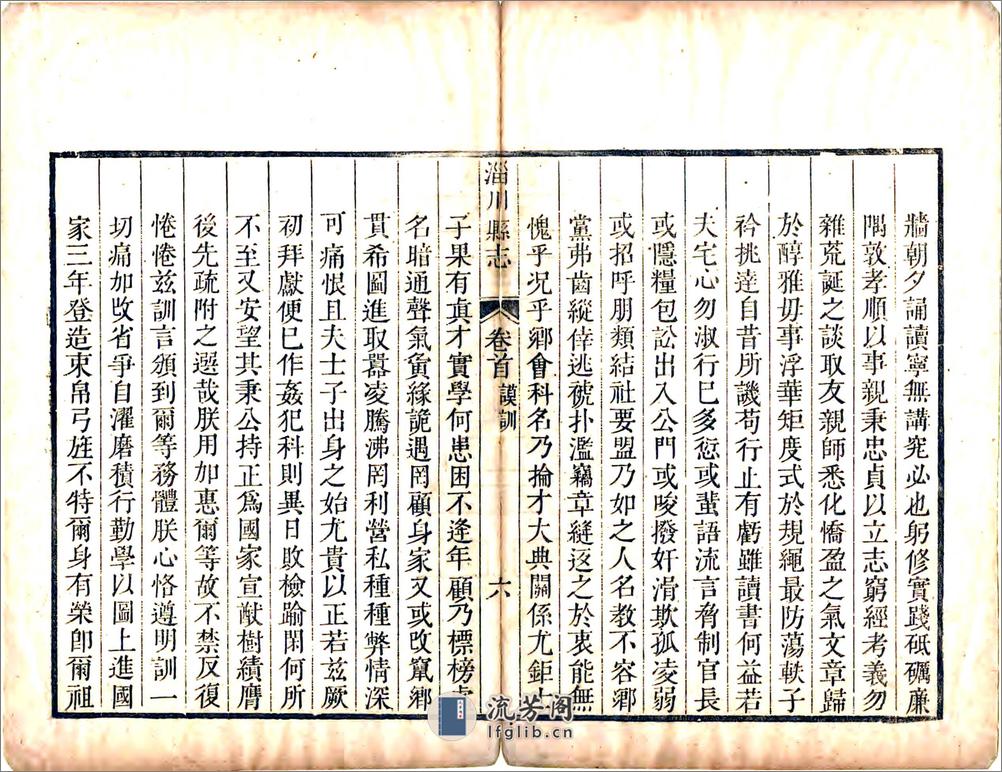 牆朝夕誦讀寧無講究必也躬修實踐砥礪廉
隅敦孝順以事親秉忠貞以立志窮經考義勿
雜荒誕之談取友親師悉化憍盈之氣文章歸
於醇雅毋事浮華矩度式於規繩最防蕩軼子
衿挑達自昔所譏苟行止有虧雖讀書何益若
夫宅心勿淑行巳多愆或蜚語流言脅制官長
或隱糧包訟出入公門或唆撥奸滑欺孤凌弱
或招呼朋類結社要盟乃如之人名教不容鄉
黨弗齒縱倖逃褫扑濫竊章縫返之於衷能無
愧乎况乎鄉會科名乃掄才大典關係尤鉅士
淄川縣志
卷首
謨訓
六
子果有真才實學何患困不逢年顧乃標榜虛
名暗通聲氣夤緣詭遇罔顧身家又或改竄鄉
貫希圖進取囂凌騰沸罔利營私種種弊情深
可痛恨且夫士子出身之始尤貴以正若茲厥
初拜獻便巳作姦犯科則異日敗檢踰閑何所
不至又安望其秉公持正爲國家宣猷樹績膺
後先疏附之選哉朕用加惠爾等故不禁反復
惓惓茲訓言頒到爾等務體朕心恪遵明訓一
切痛加改省爭自濯磨積行勤學以圖上進國
家三年登造束帛弓旌不特爾身有榮卽爾祖
流芳阁
lfglib.cn